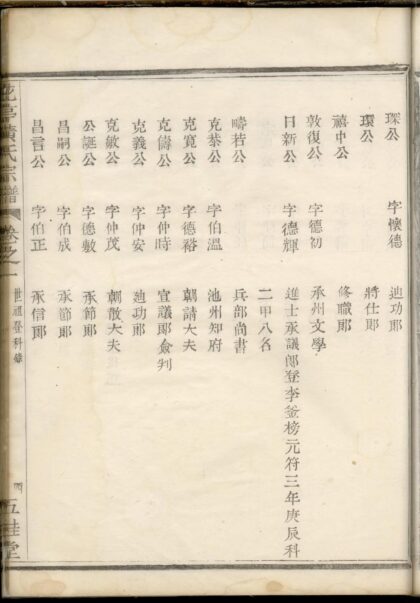 琛公 字懷德 迪功郎
環公 將仕郎
禧中公 修職郎
敦復公 字德初 承州文學
日新公 字德輝 進士承議郎登李釜榜元符三年庚辰科
二甲八名
疇若公 兵部尚書
克恭公 字伯溫 池州知府
克寬公 字德裕 朝請大夫
克儔公 字仲時 宣議郎僉判
克義公 字仲安 迪功郎
克敏公 字仲茂 朝散大夫
公誕公 字德敷 承節郎
昌嗣公 字伯成 承節郎
昌言公 字伯正 承信郎
氏宗譜 卷之一 世祖登科錄 四 五桂堂